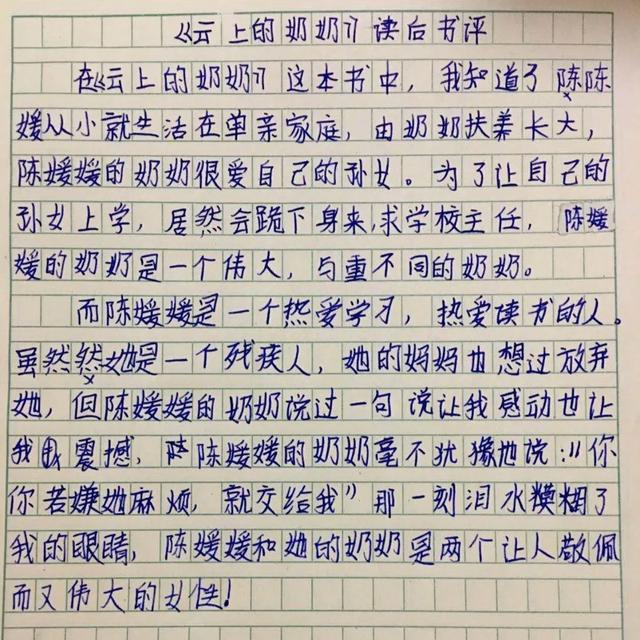 《云上的奶奶》读后书评
在《云上的奶奶》这本书中，我知道了陈陈
媛从小就生活在单亲家庭，由奶奶扶养长大，
陈媛媛的奶奶很爱自己的孙女。为了让自己的
孙女上学，居然会跪下身来，求学校主任，陈媛
媛的奶奶是一个伟大，与重不同的奶奶。
而陈媛媛是一个热爱学习，热爱读书的人。
虽然然她是一个残疾人，她的妈妈也想过放弃
她，但陈媛媛的奶奶说过一句说让我感动也让
我我震撼，陈陈媛媛的奶奶毫不犹豫地说："你
你若嫌她麻烦，就交给我"那一刻泪水模糊了
我的眼睛，陈媛媛和她的奶奶是两个让人敬佩
而又伟大的女性！